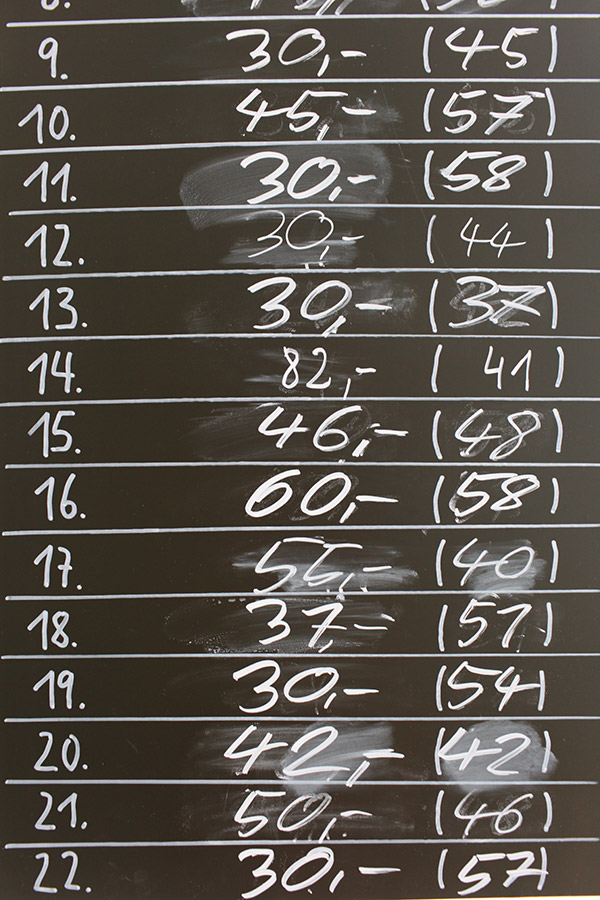 9. 30,- (45)
10. 45,- (57)
11. 30,- (58)
12. 30,- (44)
13. 30,- (37)
14. 82,- (41)
15. 46,- (48)
16. 60,- (58)
17. 55,- (40)
18. 37,- (57)
19. 30,- (54)
20. 42,- (42)
21. 50,- (46)
22. 30,- (57)